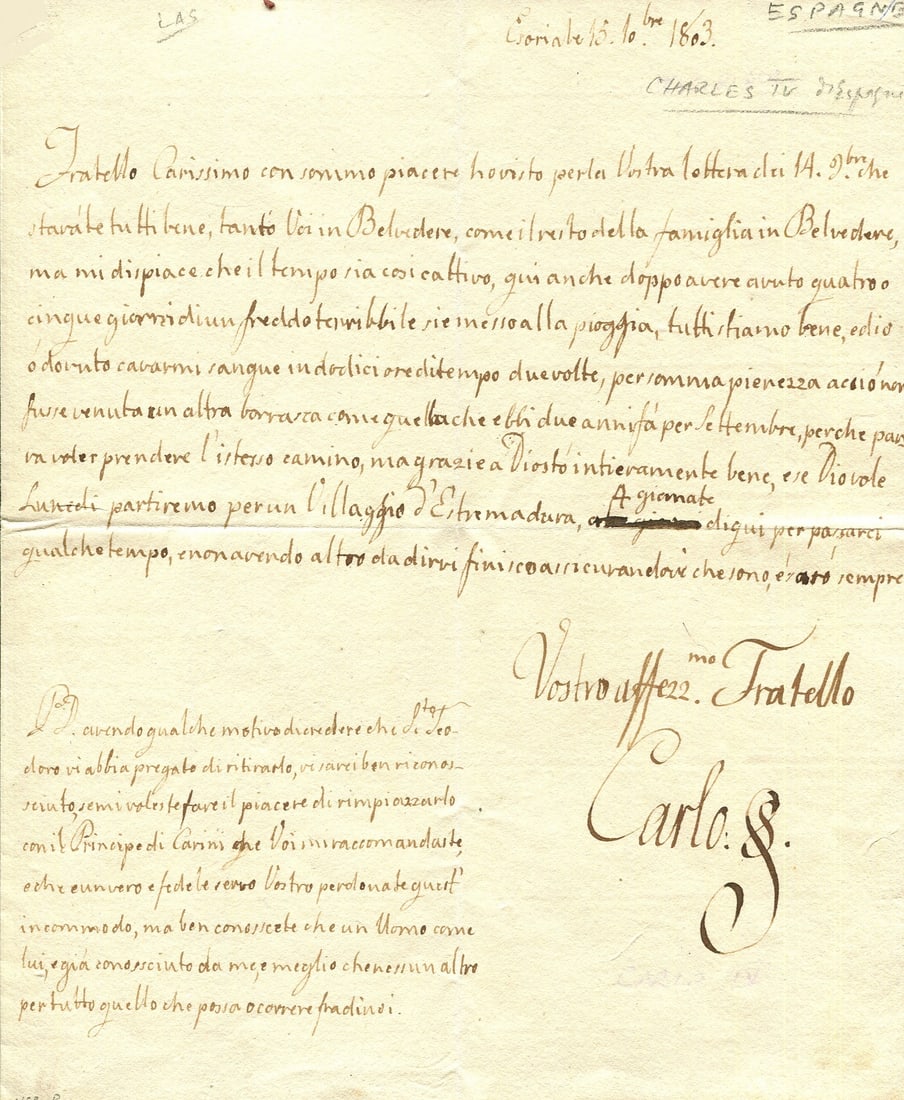 LAS
ESPAGNE
Escorial e 15. 10.bre 1803.
CHARLES IV d'Espagne
Fratello Carissimo con sommo piacere ho visto perla Vostra lettera dei 14. 9.bre che
stavate tutti bene, tanto Voi in Belvedere, come il resto della famiglia in Belvedere,
ma mi dispiace che il tempo sia cosi cattivo, qui anche doppo avere avuto quatro o
cinque giorni di un freddo terribbile sie messo alla pioggia, tutti stiamo bene, ed io
ó dovuto cavarmi sangue in dodici ore di tempo due volte, per somma pienezza acció non
fusse venuta un altra borrasca come quella che ebbi due anni fá per Settembre, perche pare
va voler prendere l'istesso camino, ma grazie a Dio stó intieramente bene, e se Dio vole
Lunedi partiremo per un Villaggio d'Estremadura, a
4 giornate
di qui per passarci
qualche tempo, e non avendo altro da dirvi finisco assicurandovi che sono, é saró sempre
Vostro affezz.mo Fratello
Carlo.
P.D. avendo qualche motivo di credere che S.to Teo-
doro vi abbia pregato di ritirarlo, vi sarei ben riconos-
sciuto, se mi voleste fare il piacere di rimpiazzarlo
con il Principe di Carini che Voi mi raccomandaste,
e che e un vero e fedele servo Vostro perdonate quest'
incommodo, ma ben conosscete che un Uomo come
lui, e giá conossciuto da me, e meglio che nessun altro
per tutto quello che possa ocorrere fra di noi.